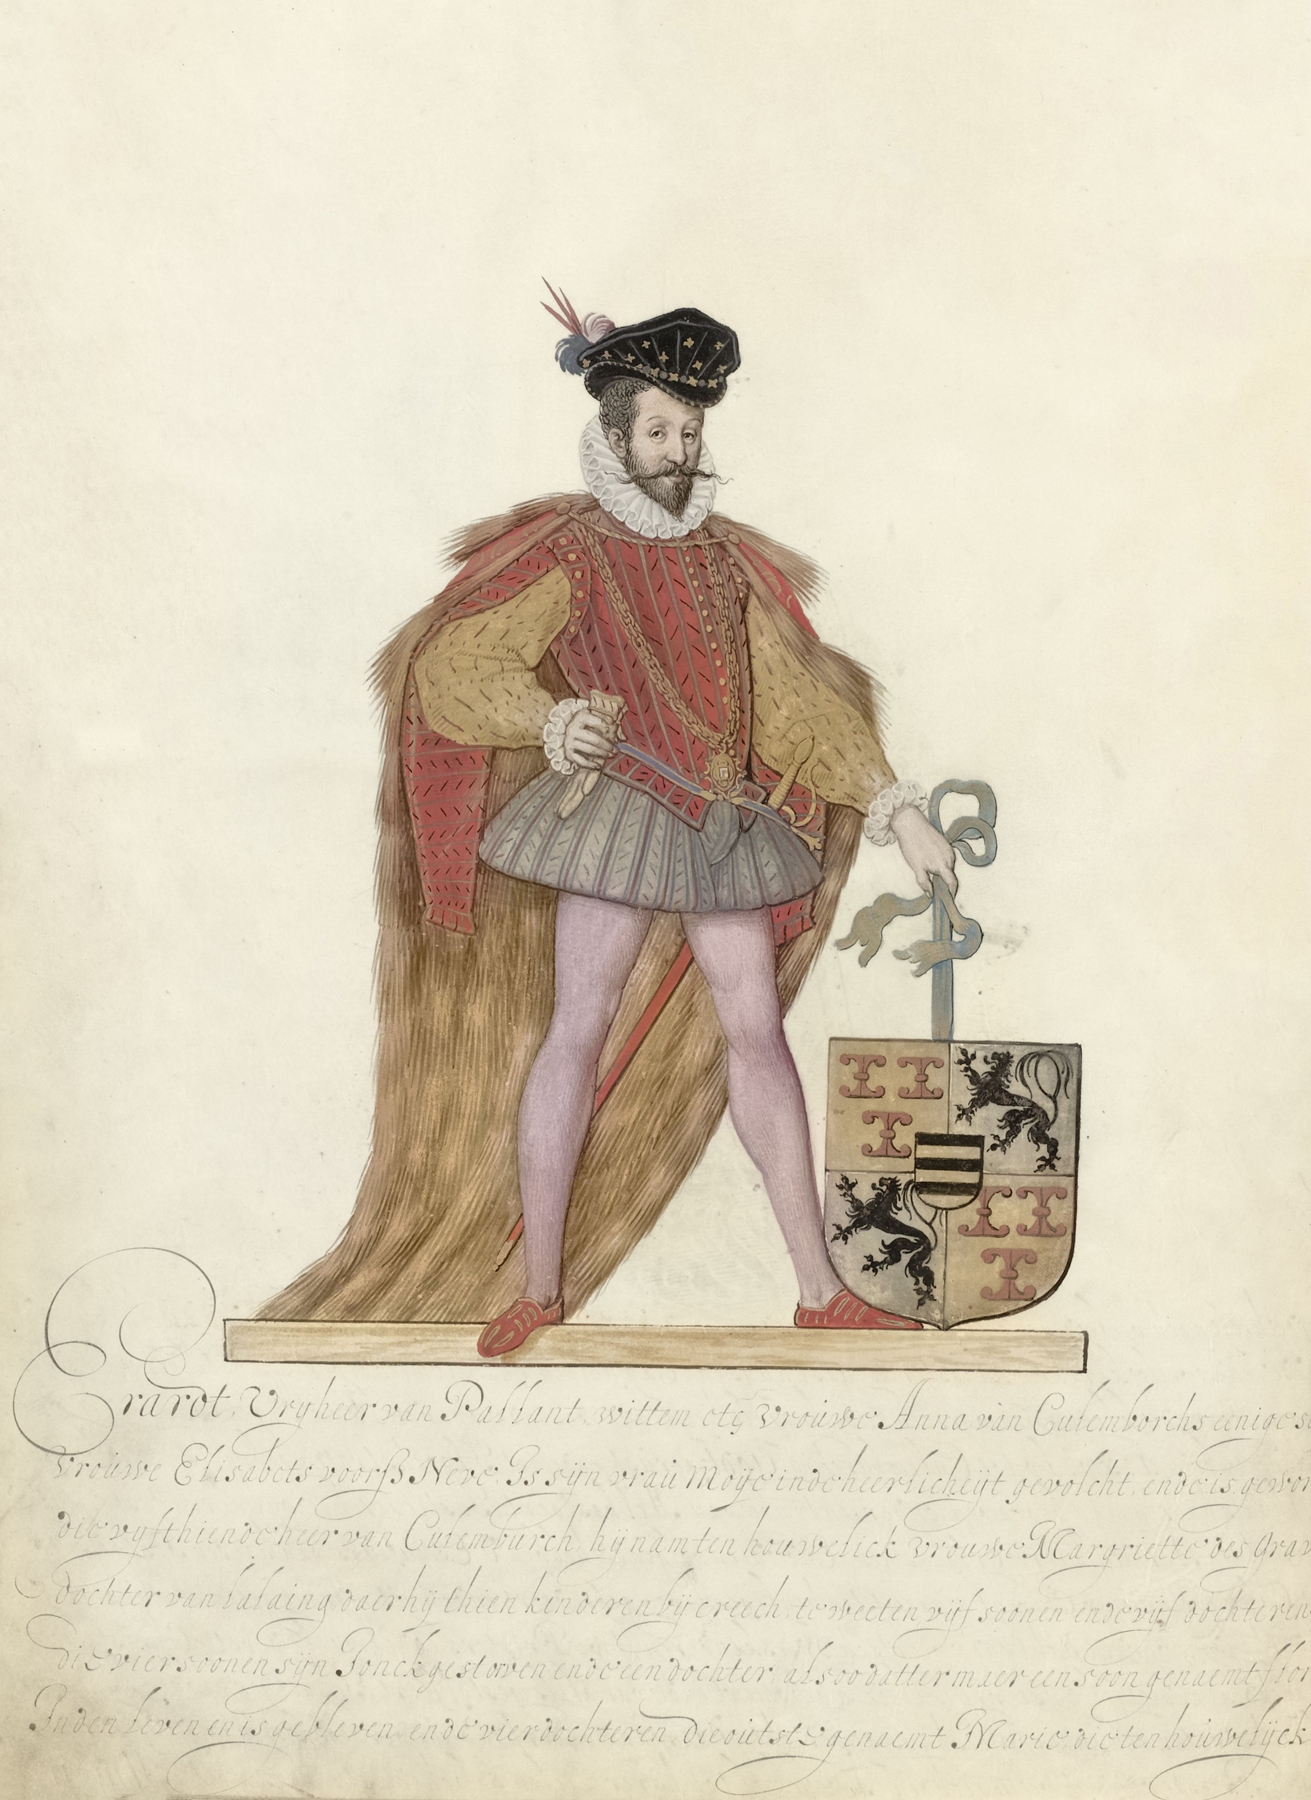 Erardt Vryheer van Pallant, wittem etc Vrouwe Anna van Culemborchs eenige
Vrouwe Elisabets voorß Neve. Is sijn vrau Moije inde heerlicheijt gevolcht, ende is
die vijfthiende heer van Culemburch, hij nam ten houwelick Vrouwe Margriette des
dochter van lalaing daer hij thien kinderen bij creech, te weeten vijf soonen ende vijf dochteren
die vier soonen sijn Jonck gestorven ende een dochter, alsoo datter maer een soon genaemt
Inden leven en is gebleven, ende vier dochteren, die outste genaemt Marie, die ten houwelijck